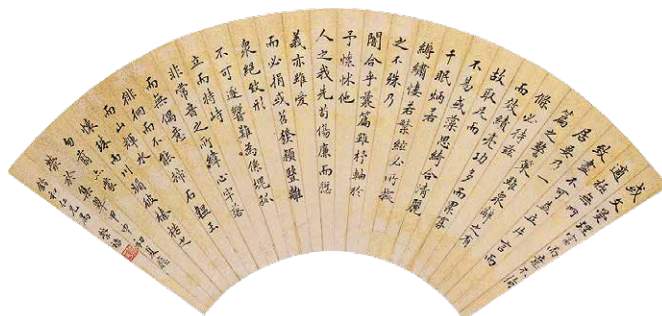 或文繁理富而意不指
適極無兩
致盡不可益立片言而
居要乃一
篇之警策雖眾辭之有
條必待茲
而效績亮功多而累寡
故取足而
不易或藻思綺合清麗
千眠炳若
縟繡悽若繁絃必所擬
之不殊乃
闇合乎曩篇雖杼軸於
予懷怵他
人之我先苟傷廉而愆
義亦雖愛
而必捐或苕發穎豎離
眾絕致形
不可逐響難為係塊孤
立而特峙
非常音之所緯心牢落
而無偶意
徘徊而不能揥石韞玉
而山輝水
懷珠而川媚彼榛楛之
勿翦亦蒙
榮於集翠